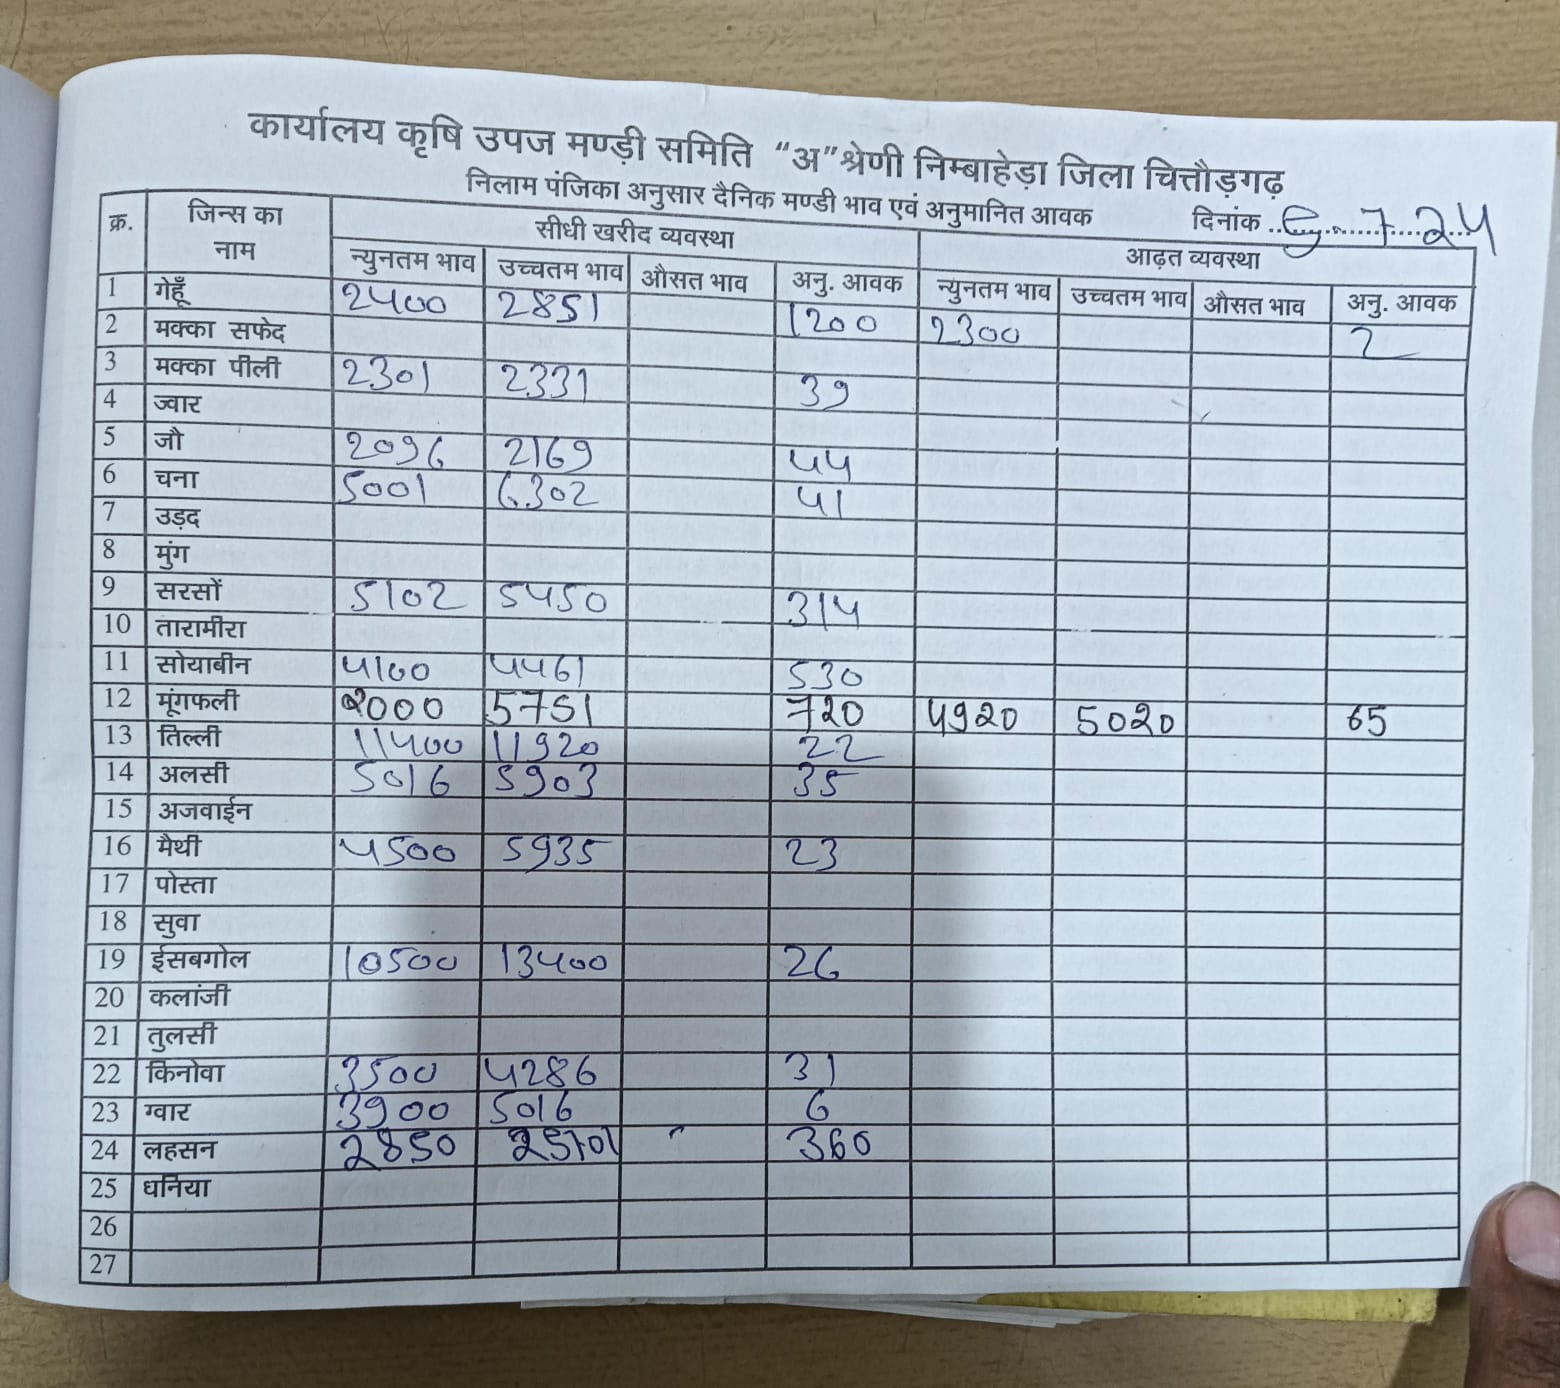 कार्यालय कृषि उपज मण्ड़ी समिति "अ" श्रेणी निम्बाहेड़ा जिला चित्तौड़गढ़
निलाम पंजिका अनुसार दैनिक मण्डी भाव एवं अनुमानित आवक दिनांक 7 24
क्र. जिन्स का नाम सीधी खरीद व्यवस्था आढ़त व्यवस्था
न्युनतम भाव उच्चतम भाव औसत भाव अनु. आवक न्युनतम भाव उच्चतम भाव औसत भाव अनु. आवक
1 गेहूँ 2400 2851 1200 2300 2
2 मक्का सफेद
3 मक्का पीली 2301 2331 39
4 ज्वार
5 जौ 2096 2169 44
6 चना 5001 6302 41
7 उड़द
8 मुंग
9 सरसों 5102 5450 314
10 तारामीरा
11 सोयाबीन 4100 4461 530
12 मूंगफली 2000 5751 720 4920 5020 65
13 तिल्ली 11400 11920 22
14 अलसी 5016 5903 35
15 अजवाईन
16 मैथी 4500 5935 23
17 पोस्ता
18 सुवा
19 ईसबगोल 10500 13400 26
20 कलांजी
21 तुलसी
22 किनोवा 3500 4286 31
23 ग्वार 3900 5016 6
24 लहसन 2850 360
25 धनिया
26
27